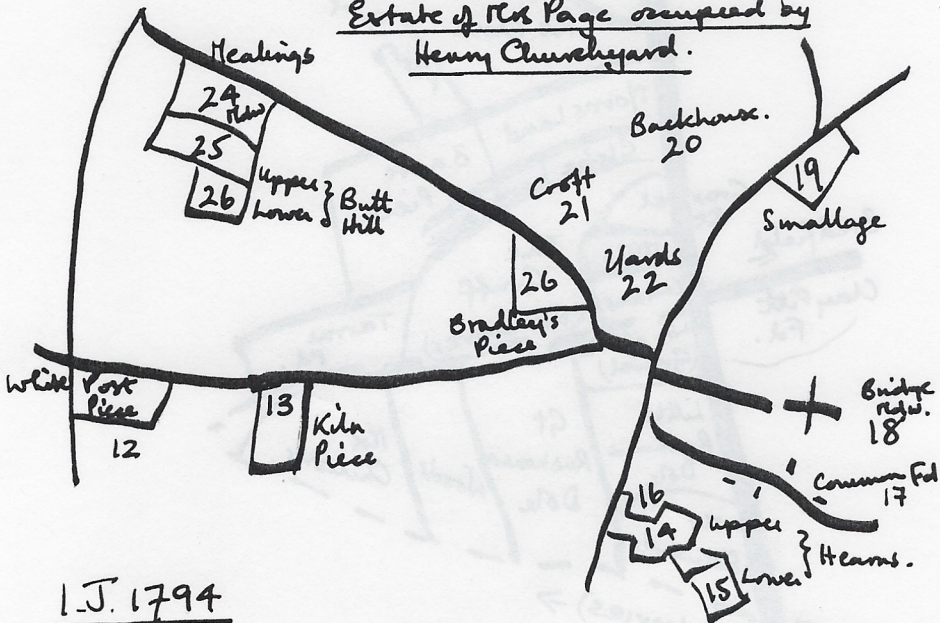 Estate of Mrs Page occupied by
Henry Churchyard.
Mealings
24
Mdw
25
26
Upper
Lower } Butt
Hill
Backhouse.
20
Croft
21
19
Smallage
Yards
22
26
Bradley's
Piece
White Post
Piece
12
13
Kiln
Piece
Bridge
Mdw.
18
Common Fd
17
16
14
Upper
Lower } Hearns.
15
I.J. 1794